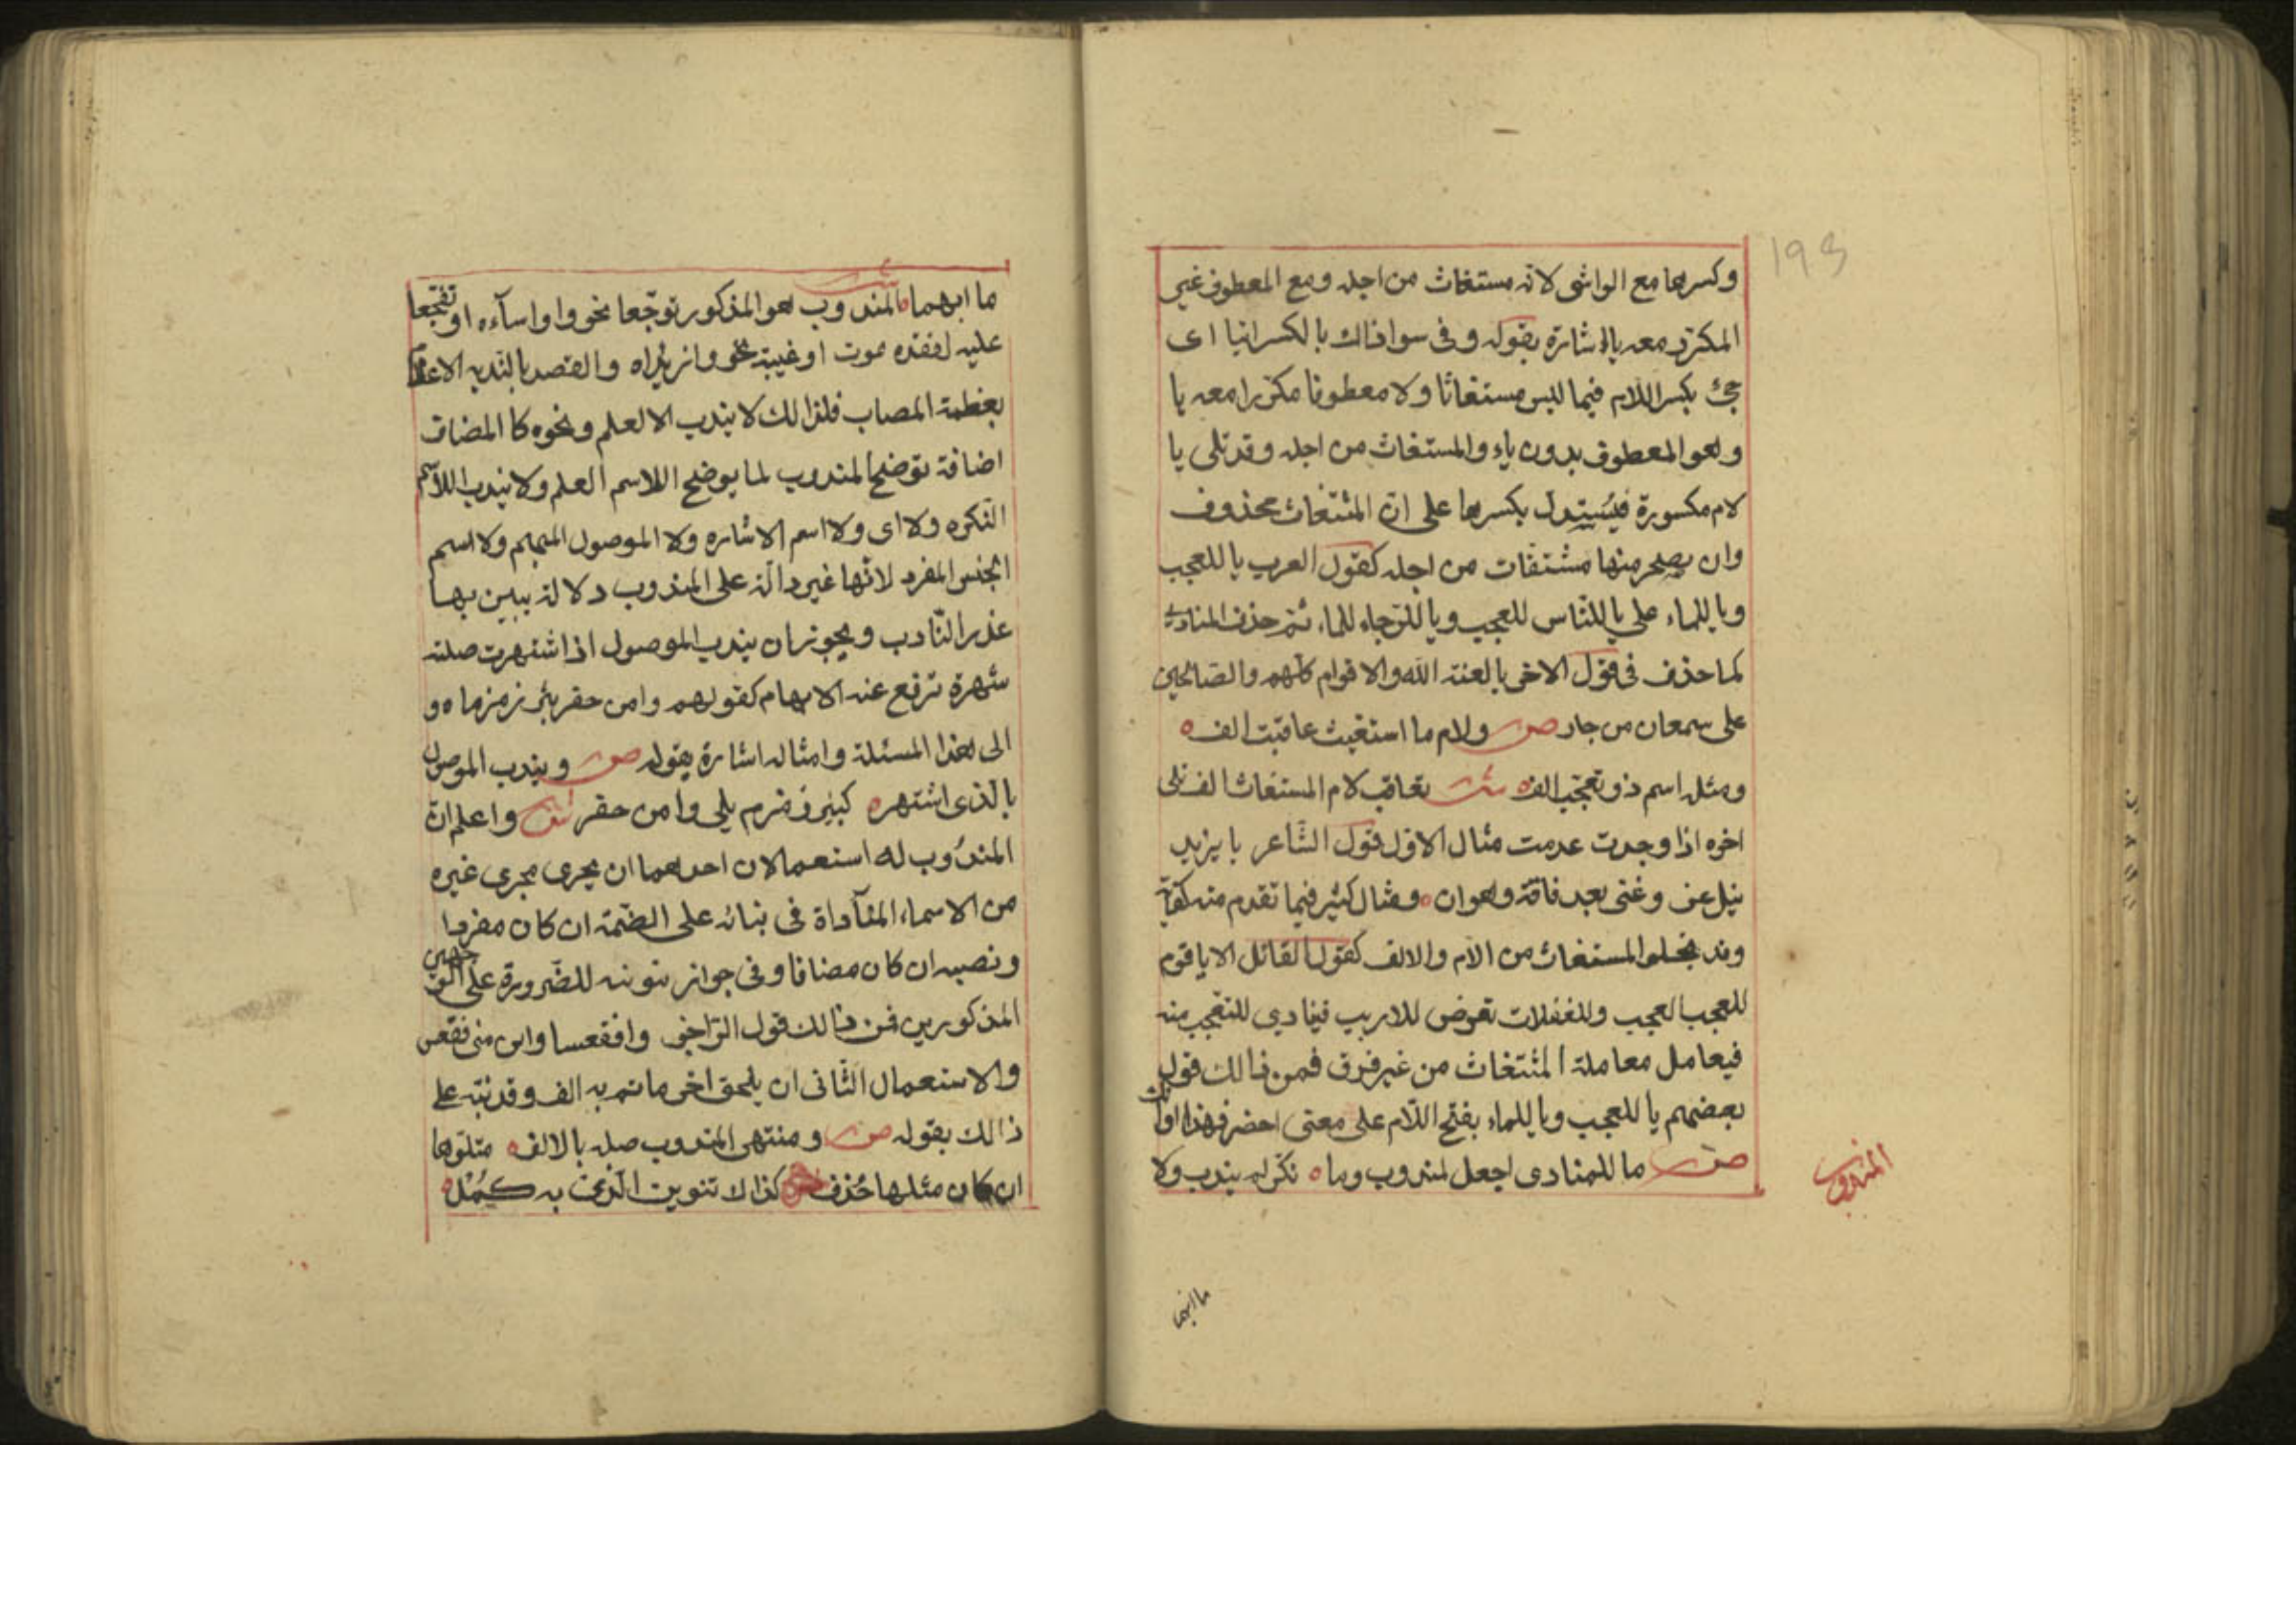 193
وكسرها مع الواشى لانه مستغاث من اجله ومع المعطوف غير
المكرر معه يا اشارة بقوله وفى سوا ذالك بالكسر ائتيا اى
جئ بكسر اللام فيما ليس مستغاثا ولا معطوفا مكررا معه يا
وهو المعطوف بدون ياء والمستغاث من اجله وقد تلى يا
لام مكسورة فيستدل بكسرها على ان المستغاث محذوف
وان مستغاث من اجله كقول العرب يا للعجب
ويا للماء على يا للناس للعجب ويا للرجاء للماء ثم حذف المنادى
كما حذف فى قول الاخر يا لعنة الله والاقوام كلهم والصالحين
على سمعان من جار ص ولام ما استغيث عاقبت الف ه
ومثله اسم ذو تعجب الف ه ش تعاقب لام المستغاث الف تلى
اخره اذا وجدت عدمت مثال الاول قول الشاعر يا يزيدا
نيل عز وغنى بعد فاقة وهوان ه ومثال كثير فيما تقدم منه
وقد يخلو المستغاث من الام والالف كقول القائل الا يا قوم
للعجب العجب وللغفلات تعرض للاريب فينادي للتعجب منه
فيعامل معاملة المستغاث من غير فرق فمن ذالك قول
بعضهم يا للعجب ويا للماء بفتح اللام على معنى احضر فهذا اوانك
ص ما للمنادى اجعل لمندوب وما ه نكر لم يندب ولا
المندوب
ما ابهما
ما ابهما ه ش المندوب هو المذكور توجعا نحو وا واساءه او تفجعا
عليه لفقده موت او غيبة نحو وا زيداه والقصد بالندبه الاعلام
بعظمة المصاب فلذالك لا يندب الا لعلم ونحوه كا المضاف
اضافة توضح المندوب لما يوضح اللاسم العلم ولا يندب اللاسم
النكره ولا اى ولا اسم الاشاره ولا الموصول المبهم ولا اسم
الجنس المفرد لانها غير دالة على المندوب دلالة يبين بها
عذر النادب ويجوز ان يندب الموصول اذا اشتهرت صلته
شهرة ترفع عنه الابهام كقولهم وامن حفر بئر زمزماه و
الى هذا المسئلة وامثاله اشارة بقوله ص ويندب الموصول
بالذى اشتهر ه كبئر زمزم يلى وامن حفر ش واعلم ان
المندوب له استعمالان احدهما ان يجرى مجرى غيره
من الاسماء المناداة فى بنائه على الضمة ان كان مفردا
ونصبه ان كان مضافا وفى جواز تنوينه للضرورة على الوجهين
المذكورين فمن ذالك قول الراجز وافقعسا واين منى فقعس
والاستعمال الثانى ان يلحق اخر ما تم به الف وقد نبه على
ذالك بقوله ص ومنتهى المندوب صله بالالف ه متلوها
ان كان مثلها حذف كذا لا تنوين الذى به كمل ه